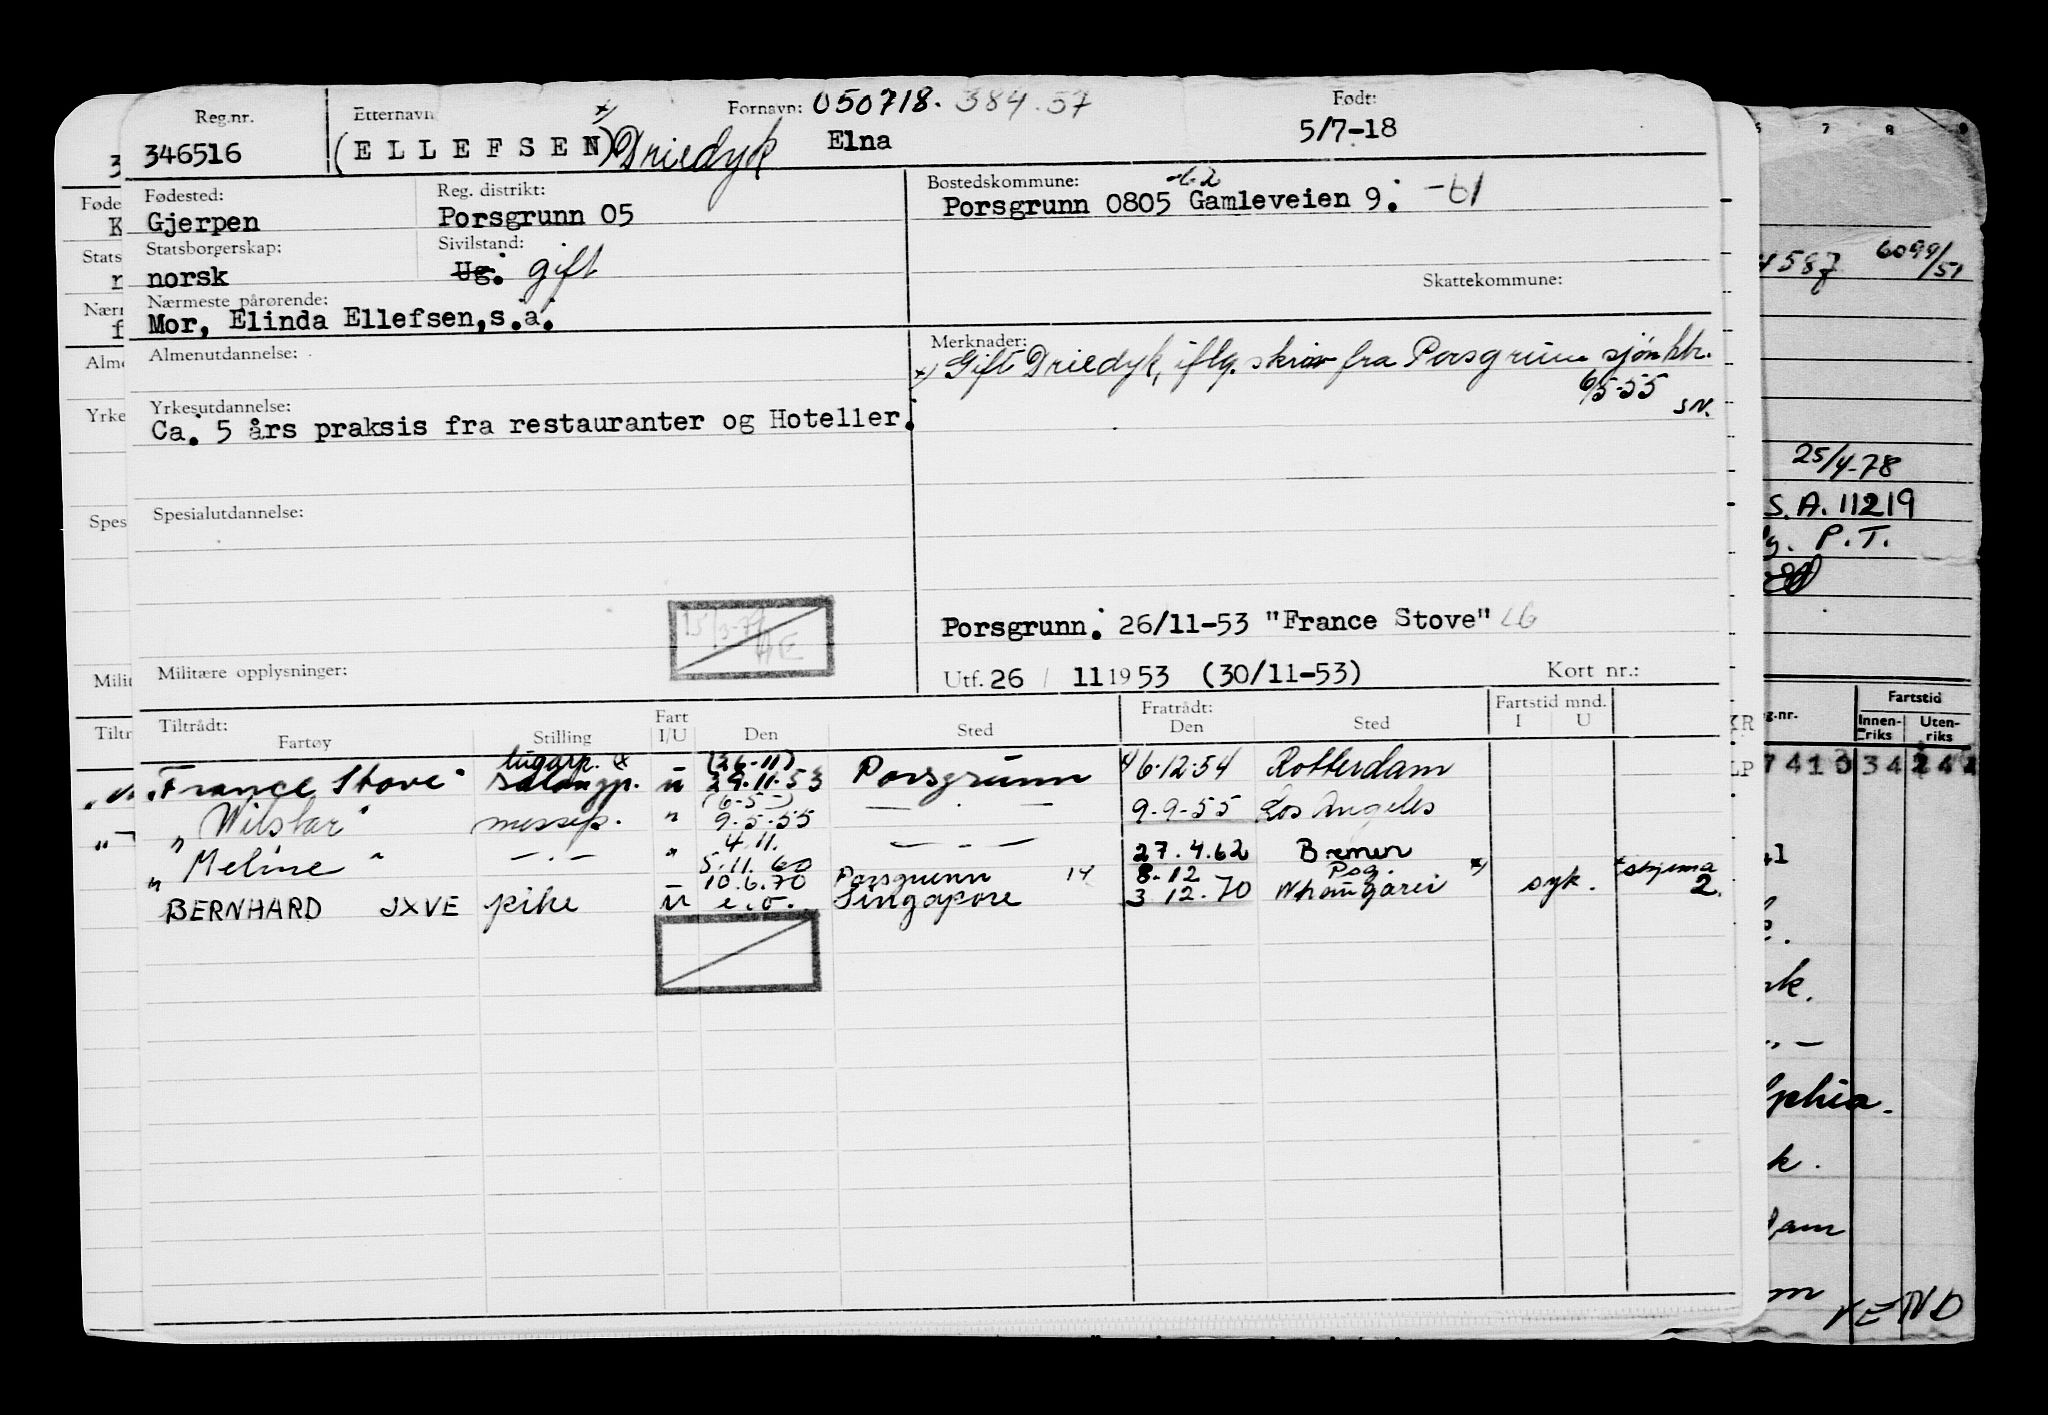 Reg.nr. Etternavn x) Fornavn: 050718. 384.57 Født:
346516 (ELLEFSEN) Driedyk Elna 5/7-18
Fødested: Reg. distrikt: Bostedskommune: -62
Gjerpen Porsgrunn 05 Porsgrunn 0805 Gamleveien 9. -61
Statsborgerskap: Sivilstand:
norsk Ug. gift Skattekommune:
Nærmeste pårørende:
Mor, Elinda Ellefsen, s.a.
Almenutdannelse: Merknader:
x) Gift Driedyk, iflg. skriv fra Porsgrunn sjømktr.
6/5-55 SN.
Yrkesutdannelse:
Ca. 5 års praksis fra restauranter og Hoteller.
Spesialutdannelse:
Porsgrunn. 26/11-53 "France Stove" LG
Militære opplysninger: Utf. 26 / 11 1953 (30/11-53) Kort nr.:
Tiltrådt: Fart Fratrådt: Fartstid mnd.
Fartøy Stilling I/U Den Sted Den Sted I U
lugarp. x (26-11)
"France Stove" salongp. u 29.11.53 Porsgrunn x) 6.12.54 Rotterdam
(6-5-)
"Wilstar" messep. " 9.5.55 — . — 9-9-55 Los Angeles
4.11.
"Meline" — . — " 5.11.60 — . — 27.4.62 Bremen
10.6.70 Porsgrunn 14 8.12 Psg. x) x skjema
BERNHARD JXVE pike u e.o. Singapore 3 12.70 Whangarei syk. 2.
4587 6099/51
25/4-78
S.A. 11219
P.T.
g.nr. Fartstid
Innenriks Utenriks
7410 34 242
k.
lphia.
k.
dam
m VEND